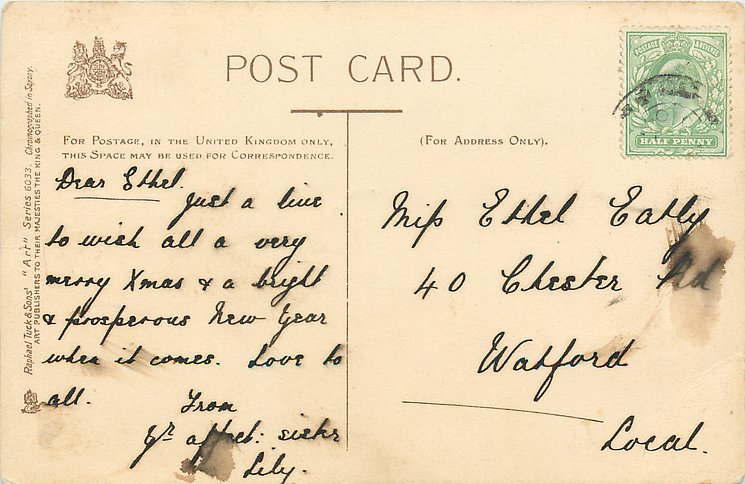 POST CARD.
FOR POSTAGE, IN THE UNITED KINGDOM ONLY,
THIS SPACE MAY BE USED FOR CORRESPONDENCE.
(FOR ADDRESS ONLY).
POSTAGE REVENUE
HALF PENNY
Raphael Tuck & Sons' "Art" Series 6033. Chromographed in Saxony.
ART PUBLISHERS TO THEIR MAJESTIES THE KING & QUEEN.
Dear Ethel.
Just a line
to wish all a very
merry Xmas & a bright
& prosperous New Year
when it comes. Love to
all.
From
yr affect: sister
Lily.
Miss Ethel Eatly
40 Chester Rd
Watford
Local.